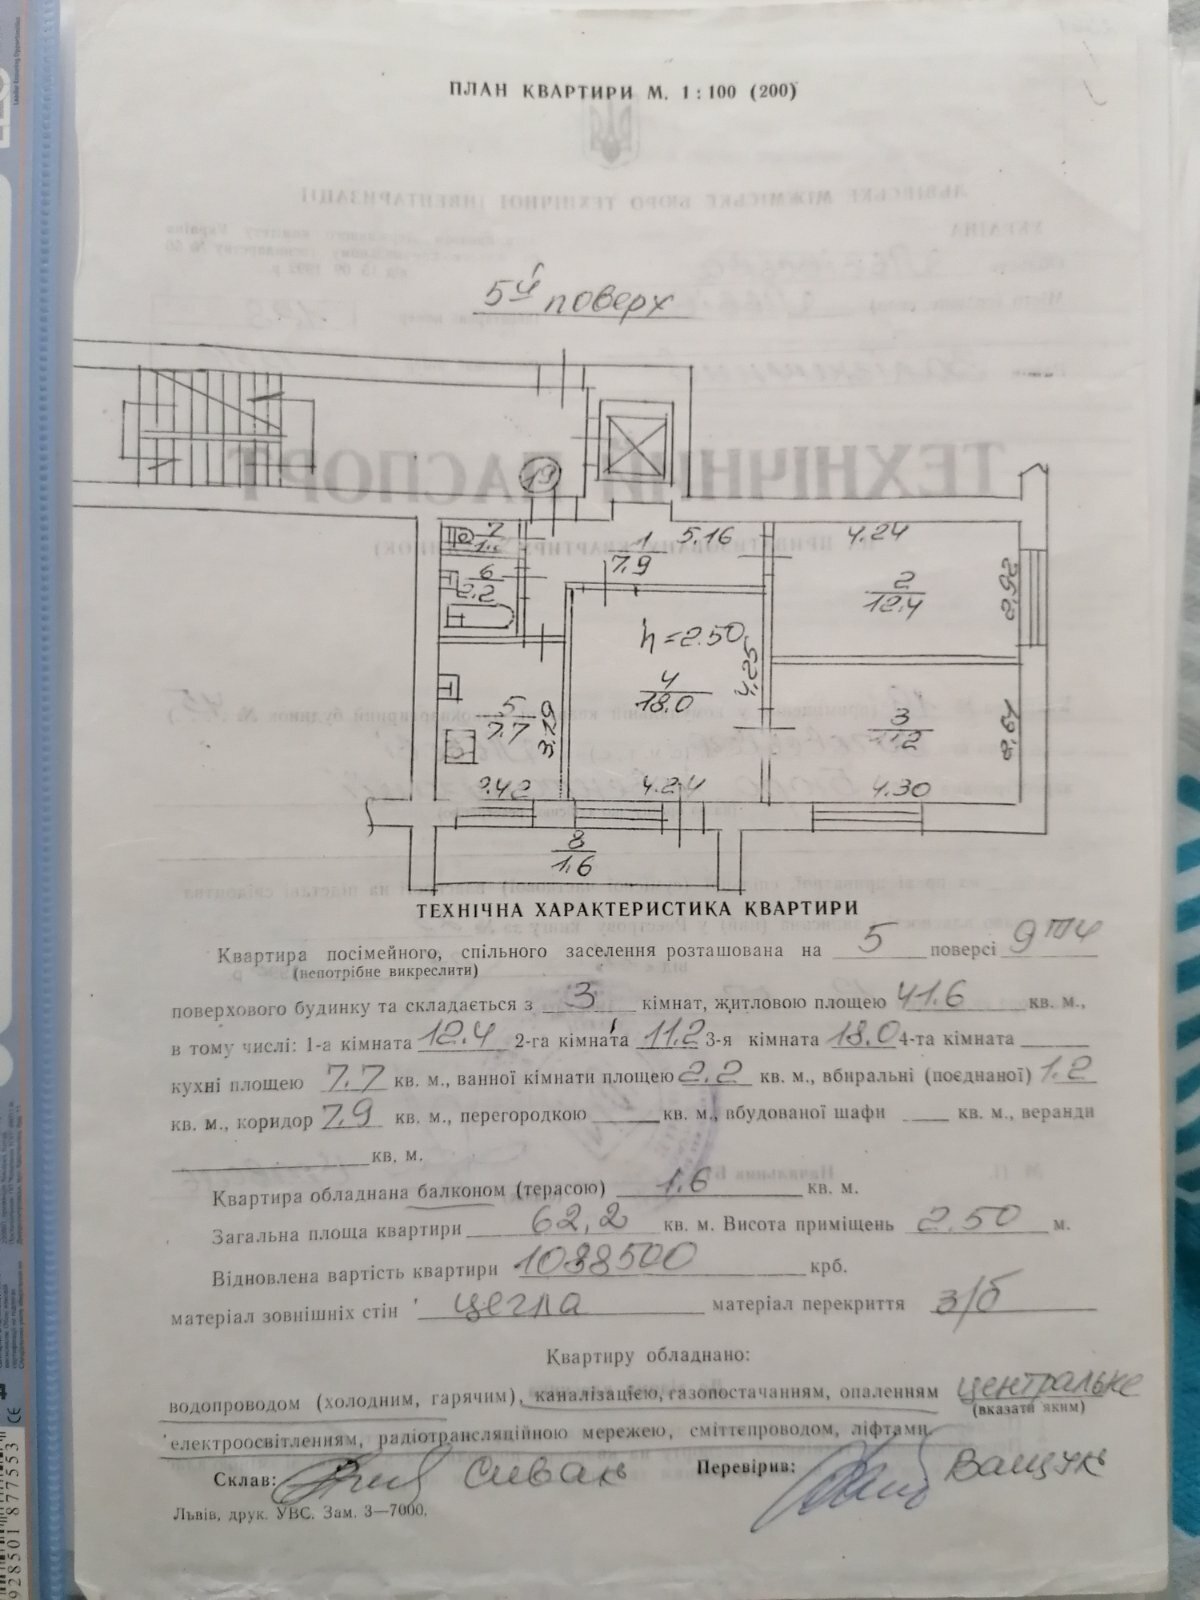 ПЛАН КВАРТИРИ М. 1 : 100 (200)
5й поверх
19
7
6
2.2
1
7.9
5.16
4.24
2
12.4
2.92
h = 2.50
4
18.0
4.25
5
7.7
3.19
3
2.64
2.42
4.24
4.30
8
1.6
ТЕХНІЧНА ХАРАКТЕРИСТИКА КВАРТИРИ
Квартира посімейного, спільного заселення розташована на 5 поверсі 9ти
(непотрібне викреслити)
поверхового будинку та складається з 3 кімнат, житловою площею 41.6 кв. м.,
в тому числі: 1-а кімната 12.4 2-га кімната 11.2 3-я кімната 18.0 4-та кімната
кухні площею 7.7 кв. м., ванної кімнати площею 2.2 кв. м., вбиральні (поєднаної) 1.2
кв. м., коридор 7.9 кв. м., перегородкою кв. м., вбудованої шафи кв. м., веранди
кв. м.
Квартира обладнана балконом (терасою) 1.6 кв. м.
Загальна площа квартири 62,2 кв. м. Висота приміщень 2.50 м.
Відновлена вартість квартири крб.
матеріал зовнішніх стін цегла матеріал перекриття з/б
Квартиру обладнано:
водопроводом (холодним, гарячим), каналізацією, газопостачанням, опаленням центральне
(вказати яким)
електроосвітленням, радіотрансляційною мережею, сміттєпроводом, ліфтами.
Склав: Сивак Перевірив: Ващук
Львів, друк. УВС. Зам. 3—7000.
928501 877553